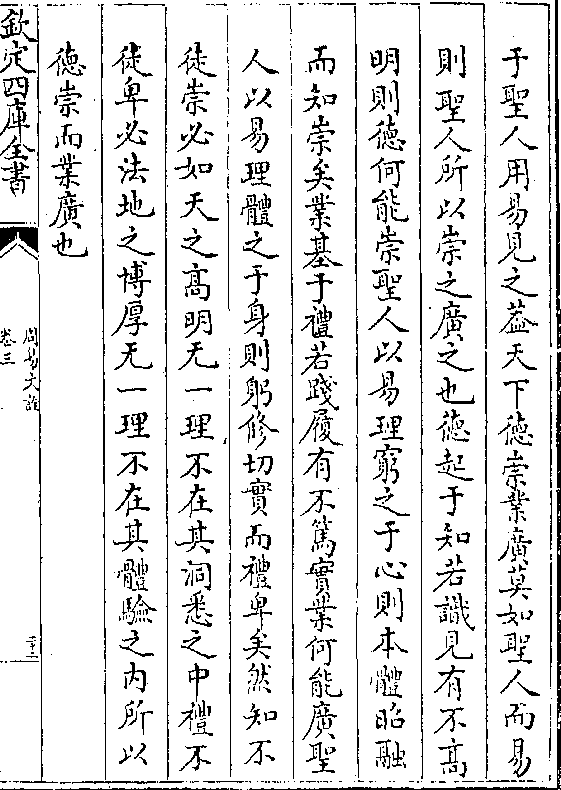 于聖人用易見之葢天下德崇業廣莫如聖人而易
則聖人所以崇之廣之也德起于知若識見有不高
明則德何能崇聖人以易理窮之于心則本體昭融
而知崇矣業基于禮若踐履有不篤實業何能廣聖
人以易理體之于身則躬修切實而禮卑矣然知不
徒崇必如天之高明无一理不在其洞悉之中禮不
徒卑必法地之博厚无一理不在其體驗之内所以
德崇而業廣也
欽定四庫全書
卷三